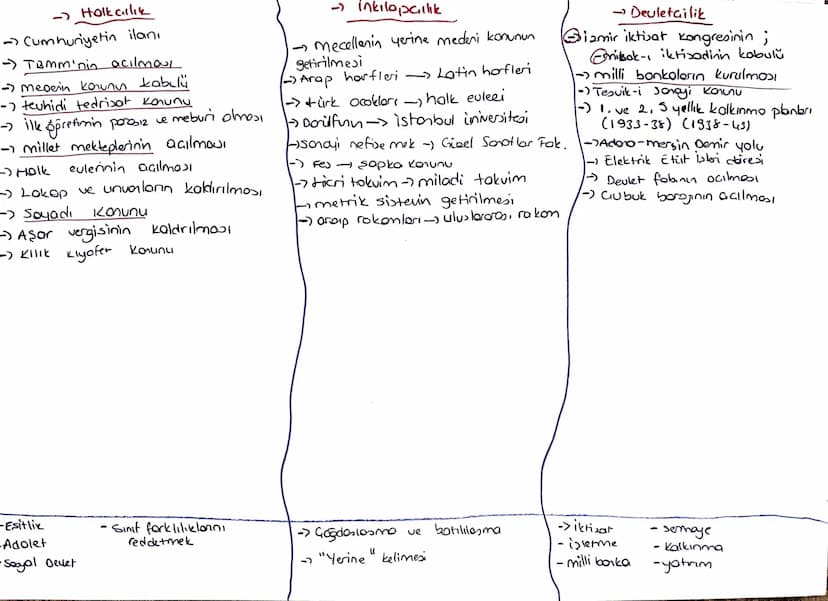 → Halkcılık
→ Cumhuriyetin ilanı
→ TBMM'nin açılması
→ medeni kanunun kabulü
→ tevhidi tedrisat kanunu
→ ilk öğretimin parasız ve mecburi olması
→ millet mekteplerinin açılması
→ Halk evlerinin açılması
→ Lakap ve unvanların kaldırılması
→ Soyadı kanunu
→ Aşar vergisinin kaldırılması
→ Kılık kıyafet kanunu
- Eşitlik
- Adalet
- Sosyal Devlet
- Sınıf farklılıklarını reddetmek
→ İnkılapçılık
→ mecellenin yerine medeni kanunun getirilmesi
→ Arap harfleri → Latin harfleri
→ türk ocakları → halk evleri
→ Darülfünun → istanbul üniversitesi
→ sanayi nefise mek → Güzel Sanatlar Fak.
→ Fes → şapka kanunu
→ hicri takvim → miladi takvim
→ metrik sistemin getirilmesi
→ arap rakamları → uluslararası rakam
→ Çağdaşlaşma ve batılılaşma
→ "Yerine" kelimesi
→ Devletçilik
→ izmir iktisat kongresinin ;
→ misak-ı iktisadinin kabulü
→ milli bankaların kurulması
→ Teşvik-i sanayi kanunu
→ 1. ve 2. 5 yıllık kalkınma planları
(1933-38) (1938-43)
→ Adana-mersin Demir yolu
→ Elektrik Etüt işleri dairesi
→ Devlet fabrının açılması
→ Çubuk barajının açılması
→ iktisat
- işletme
- milli banka
- sermaye
- kalkınma
- yatırım